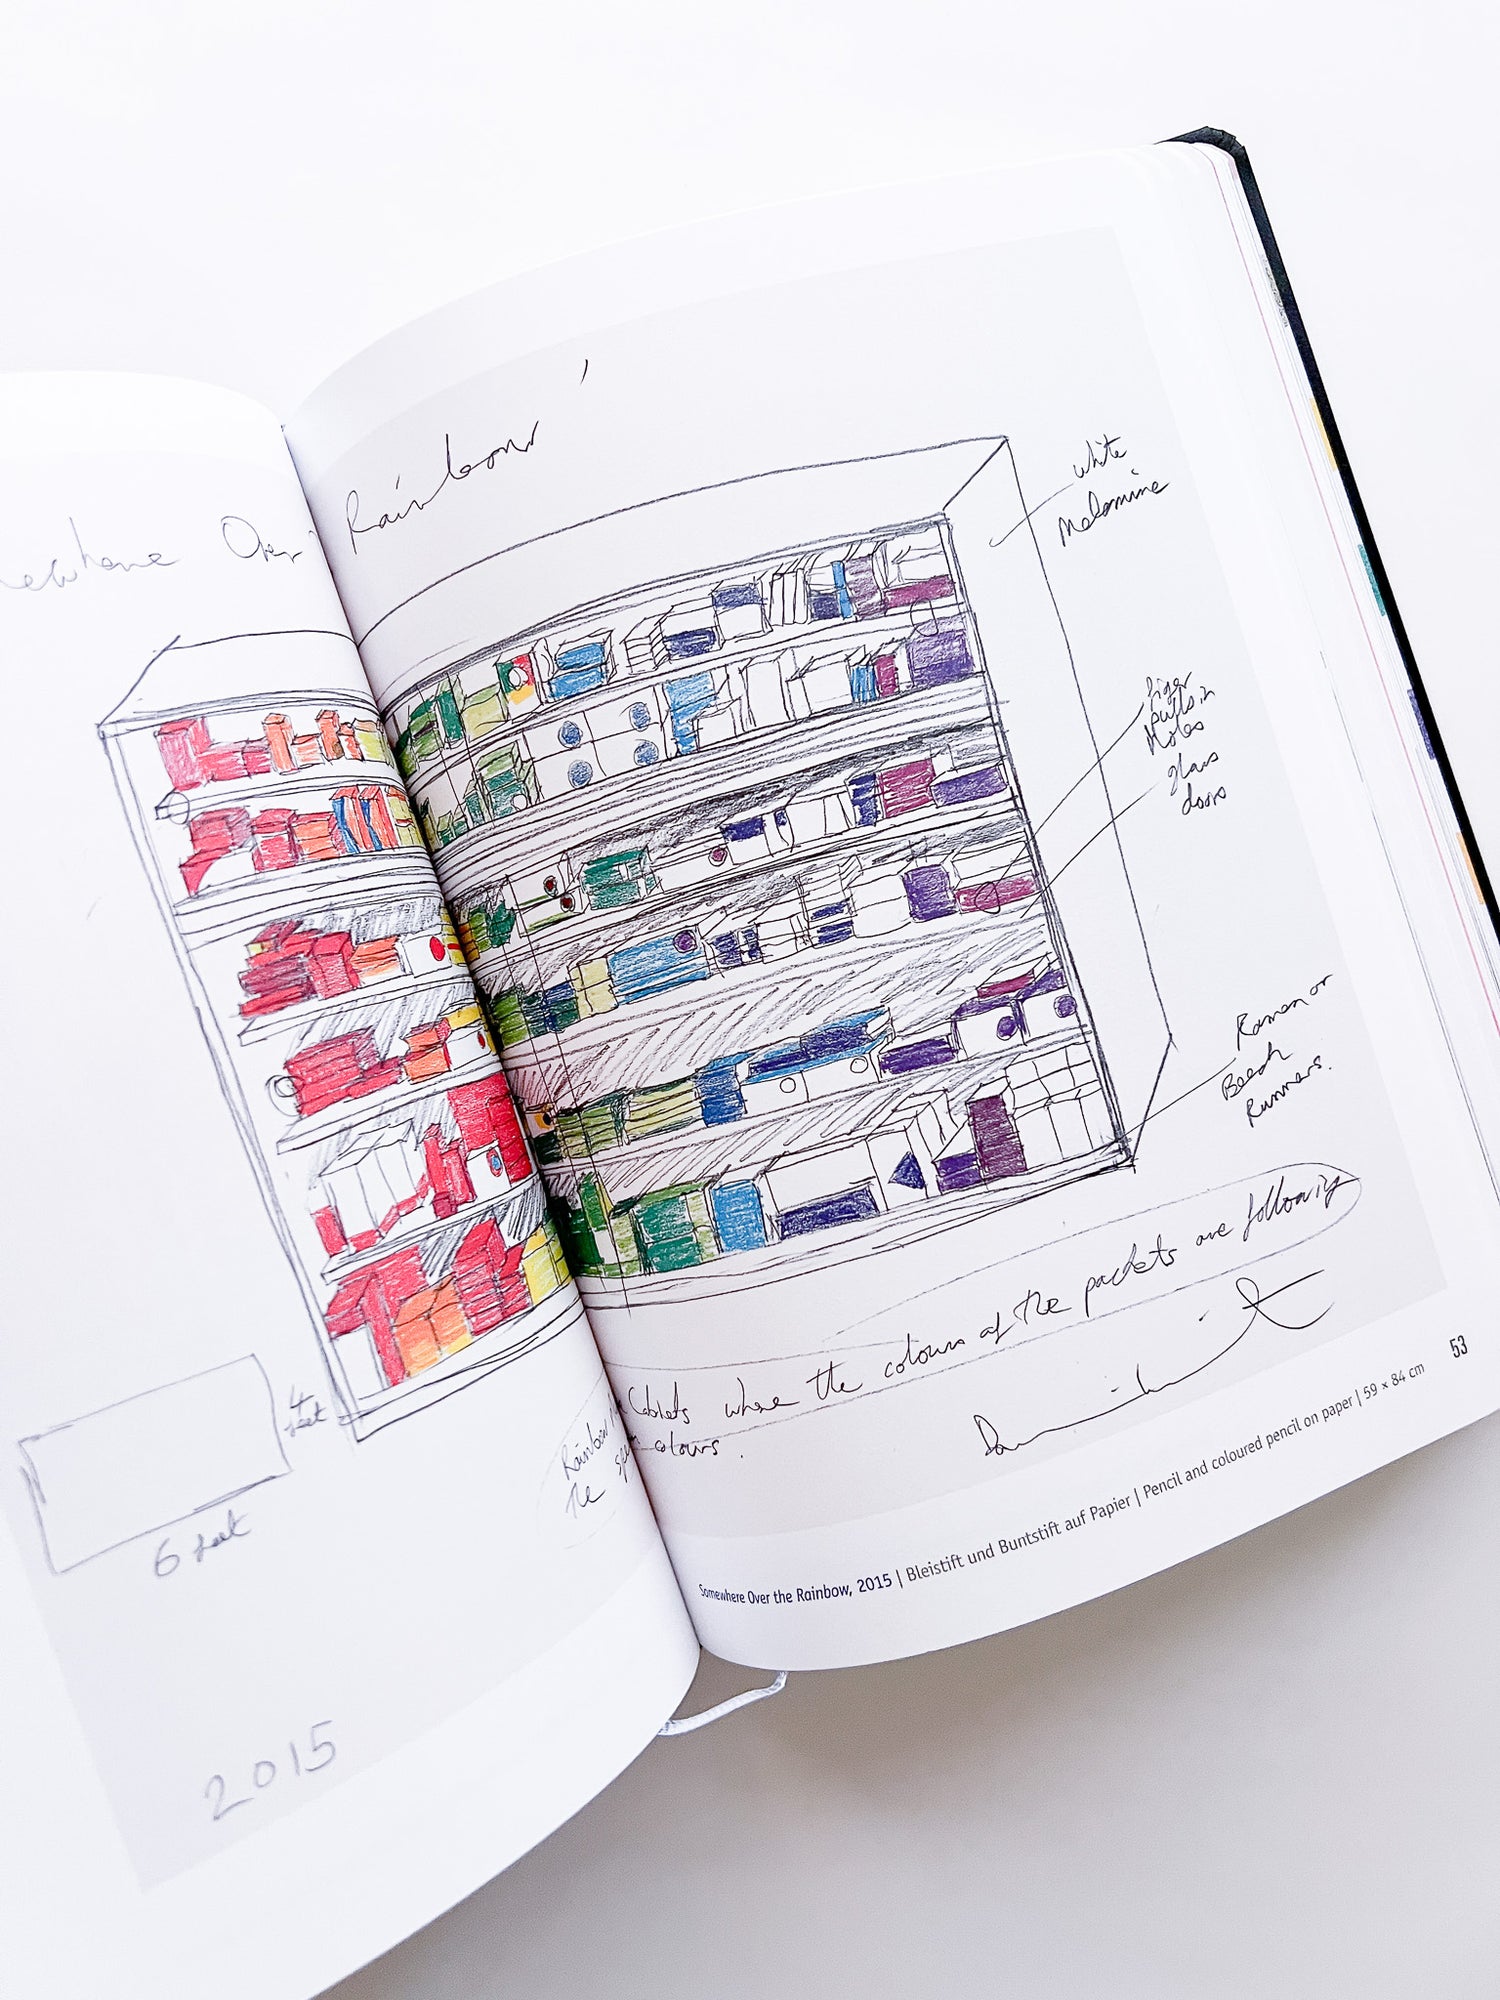 Over
Rainbow
white
Melamine
finger
pulls in
Holes
glass
doors
Ramon or
Beech
Runners.
4
feet
6 feet
Cabinets where the colours of the packets are following
Rainbow
the colours.
2015
Somewhere Over the Rainbow, 2015 | Bleistift und Buntstift auf Papier | Pencil and coloured pencil on paper | 59 x 84 cm
53